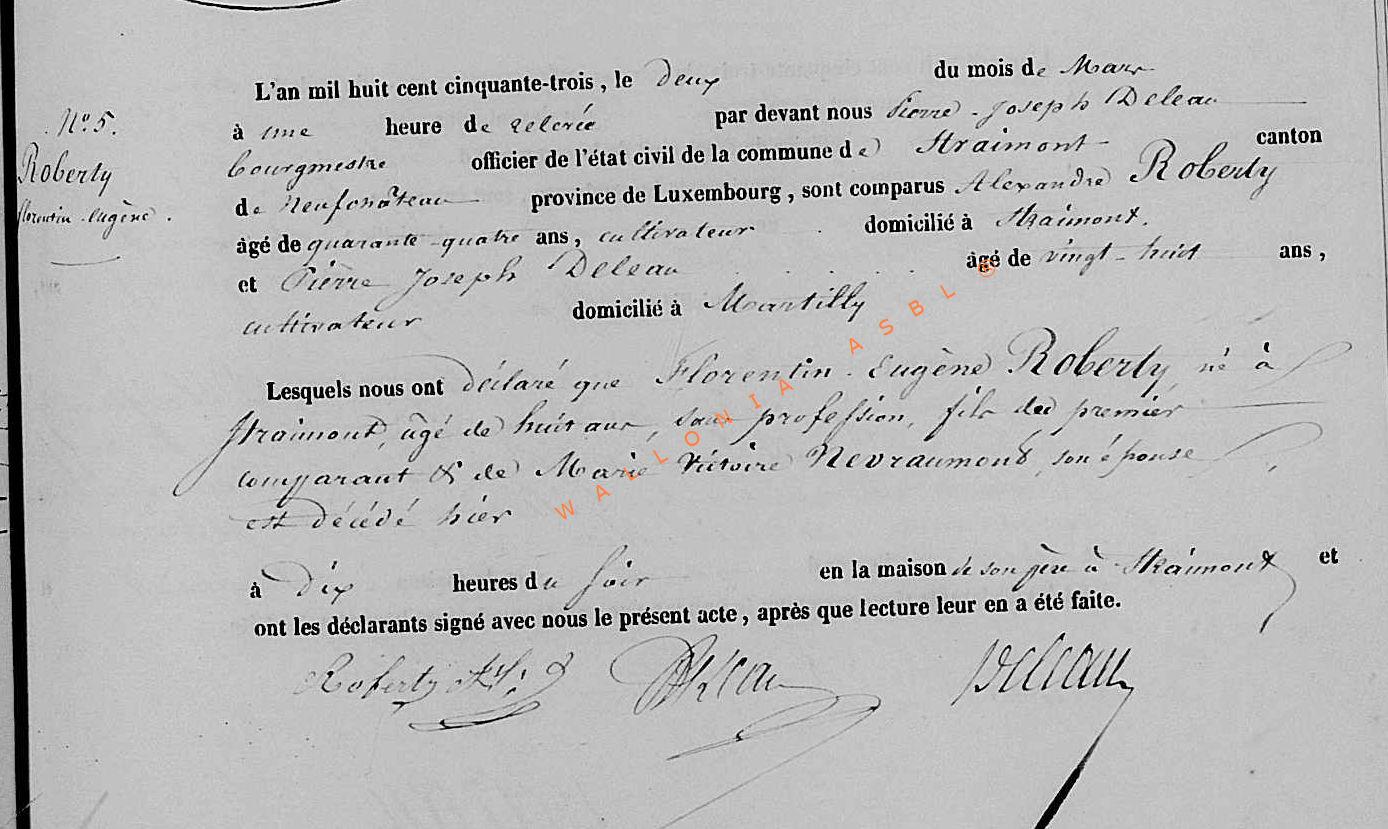 L'an mil huit cent cinquante-trois, le deux du mois de Mars
N° 5.
à une heure de relevée par devant nous Pierre-Joseph Deleau
bourgmestre officier de l'état civil de la commune de Straimont canton
Roberty
de Neufchâteau province de Luxembourg, sont comparus Alexandre Roberty
florentin-Eugène.
âgé de quarante-quatre ans, cultivateur domicilié à Straimont.
et Pierre Joseph Deleau âgé de vingt-huit ans,
cultivateur domicilié à Martilly
Lesquels nous ont déclaré que Florentin-Eugène Roberty, né à
Straimont, âgé de huit ans, sans profession, fils du premier
comparant & de Marie Victoire Nevraumont, son épouse
est décédé hier
à Dix heures du soir en la maison de son père à Straimont et
ont les déclarants signé avec nous le présent acte, après que lecture leur en a été faite.
Roberty Deleau Deleau
WALLONIA ASBL ©